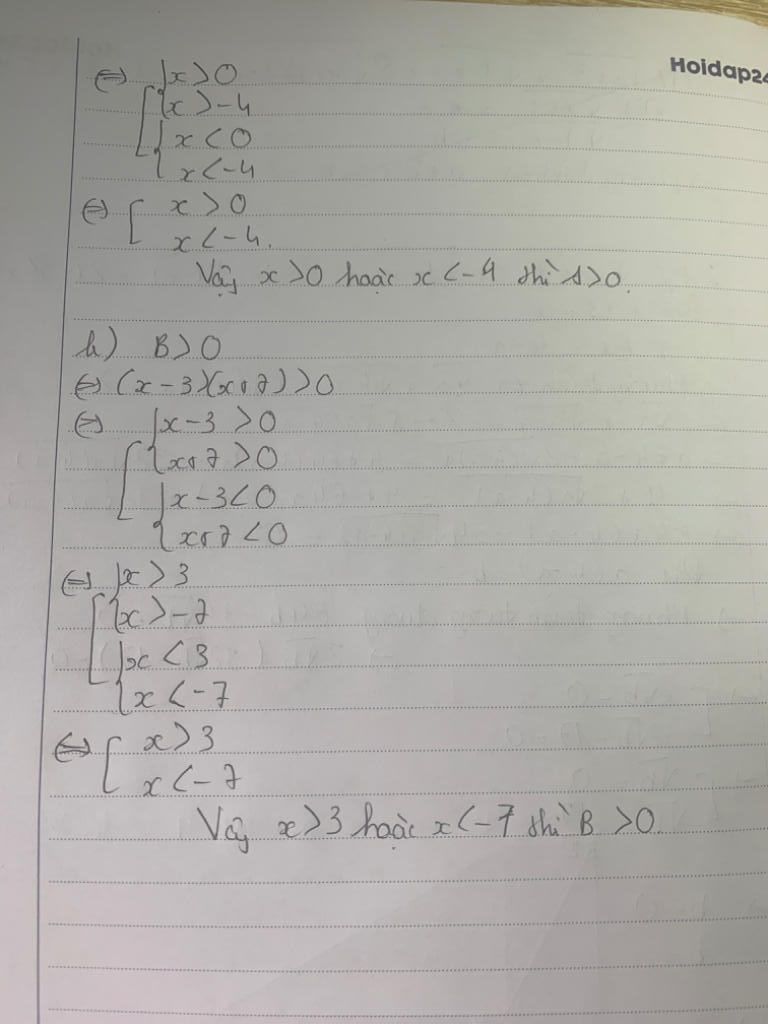 Hoidap24
⇔ x > 0
x > -4
x < 0
x < -4
⇔ x > 0
x < -4.
Vậy x > 0 hoặc x < -4 thì A > 0.
b) B > 0
⇔ (x - 3)(x + 7) > 0
⇔ x - 3 > 0
x + 7 > 0
x - 3 < 0
x + 7 < 0
⇔ x > 3
x > -7
x < 3
x < -7
⇔ x > 3
x < -7
Vậy x > 3 hoặc x < -7 thì B > 0